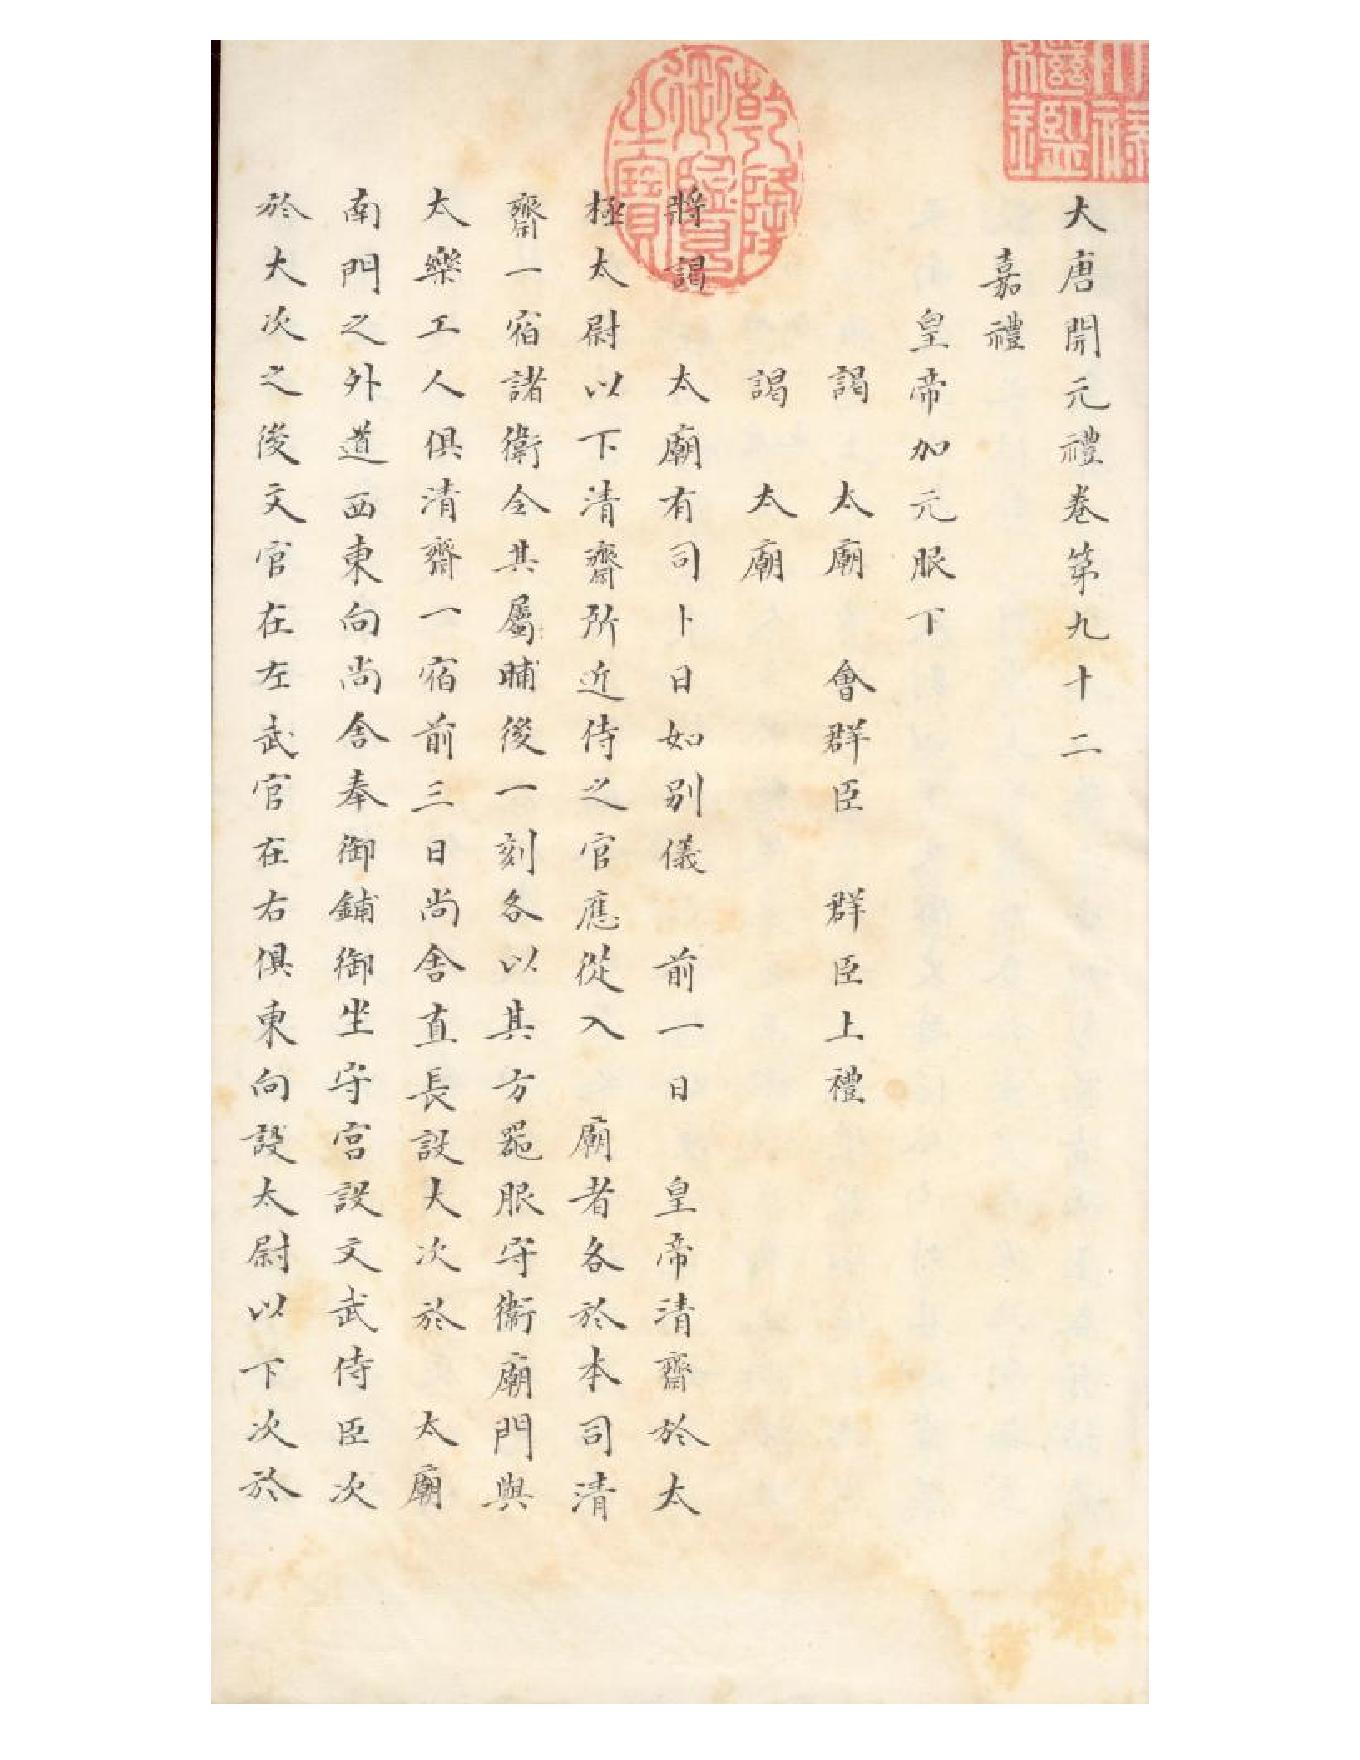 天祿繼鑑
乾隆御覽之寶
大唐開元禮卷第九十二
嘉禮
皇帝加元服下
謁 太廟 會群臣 群臣上禮
謁 太廟
將謁 太廟有司卜日如別儀 前一日 皇帝清齋於太
極太尉以下清齋所近侍之官應從入 廟者各於本司清
齋一宿諸衛令其屬晡後一刻各以其方器服守衛廟門與
太樂工人俱清齋一宿前三日尚舍直長設大次於 太廟
南門之外道西東向尚舍奉御鋪御坐守宮設文武侍臣次
於大次之後文官在左武官在右俱東向設太尉以下次於